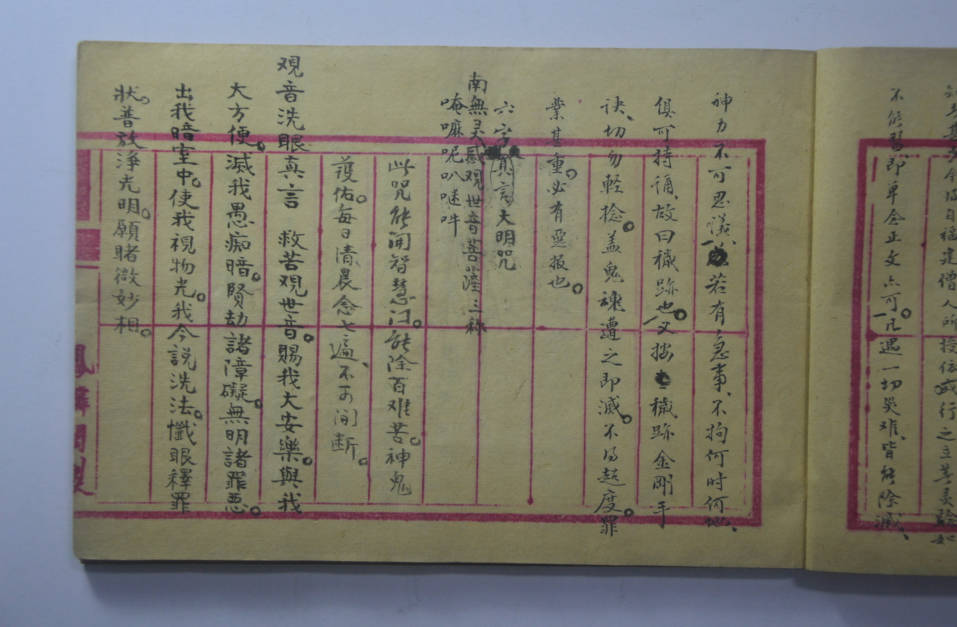 不能習即單念正文亦可。凡遇一切災难、皆能除滅、
神力不可思議、若有急事、不拘何時何地、
俱可持誦、故曰穢跡也。又按穢跡金剛手
訣、切勿軽捻。盖鬼魂遭之即滅。不得超度罪
業甚重。必有惡报也。
六字真言大明咒
南無灵感观世音菩薩三称
唵嘛呢叭𠺗吽
此咒能開智慧门。能除百难苦。神鬼
護佑。每日清晨念七遍、不可间断。
观音洗眼真言 救苦观世音。賜我大安樂。與我
大方便。滅我愚痴暗。賢劫諸障礙。無明諸罪惡。
出我暗室中。使我視物光。我今説洗法。懺眼釋罪
狀。普放浄光明。願睹微妙相。